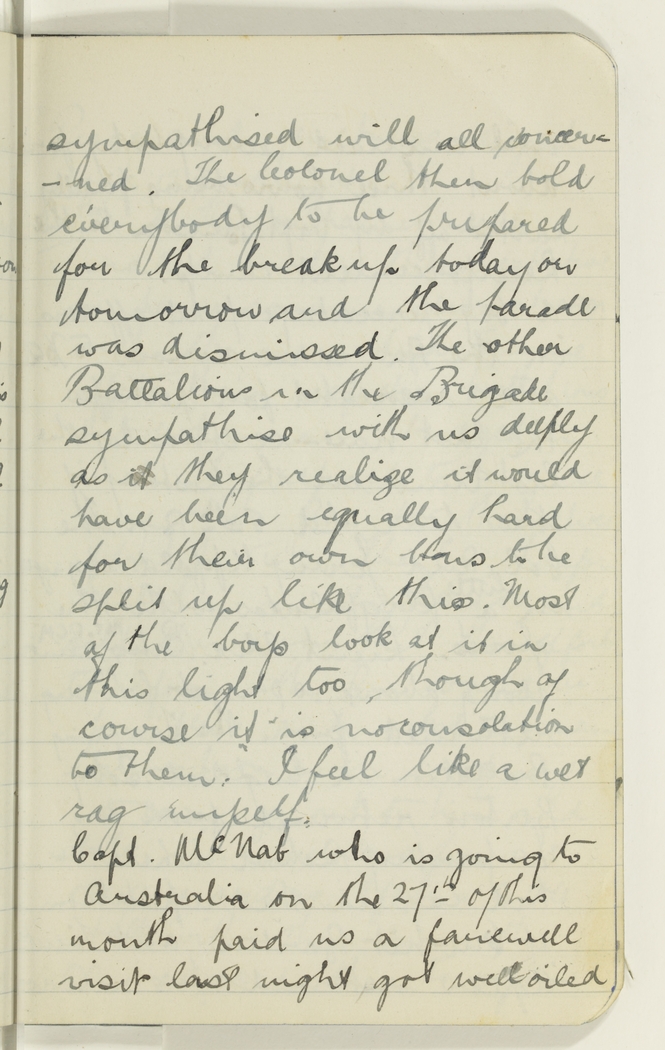 sympathised will all concer-
-ned. The Colonel then told
everybody to be prepared
for the break up today or
tomorrow and the parade
was dismissed. The other
Battalions in the Brigade
sympathise with us deeply
as it they realize it would
have been equally hard
for their own bons to be
split up like this. Most
of the boys look at it in
this light too, though of
course it is no consolation
to them. I feel like a wet
rag myself.
Capt. McNab who is going to
Australia on the 27th of this
month paid us a farewell
visit last night, got well oiled